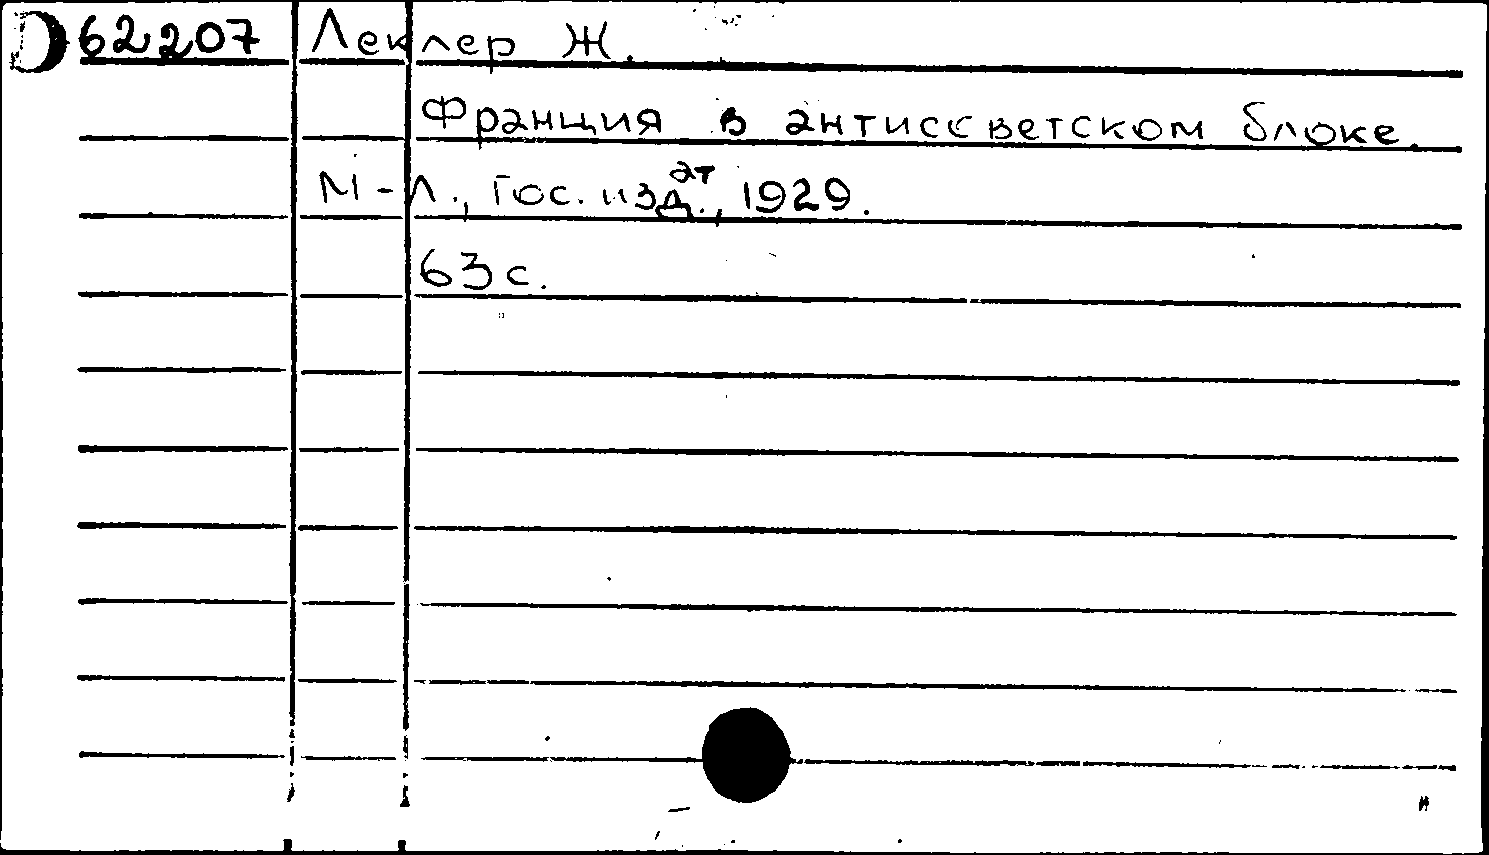 62207 Леклер Ж.
Франция в антиссветском блоке.
М-Л., Гос. издат., 1929.
63 с.